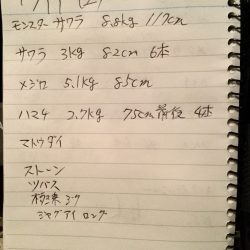 モンスターサワラ 8.8kg 117cm
サワラ 3kg 82cm 6本
メジロ 5.1kg 85cm
ハマチ 2.7kg 75cm前後 4本
マトウダイ
ストーン
ツバス
ジャグアイ ロング